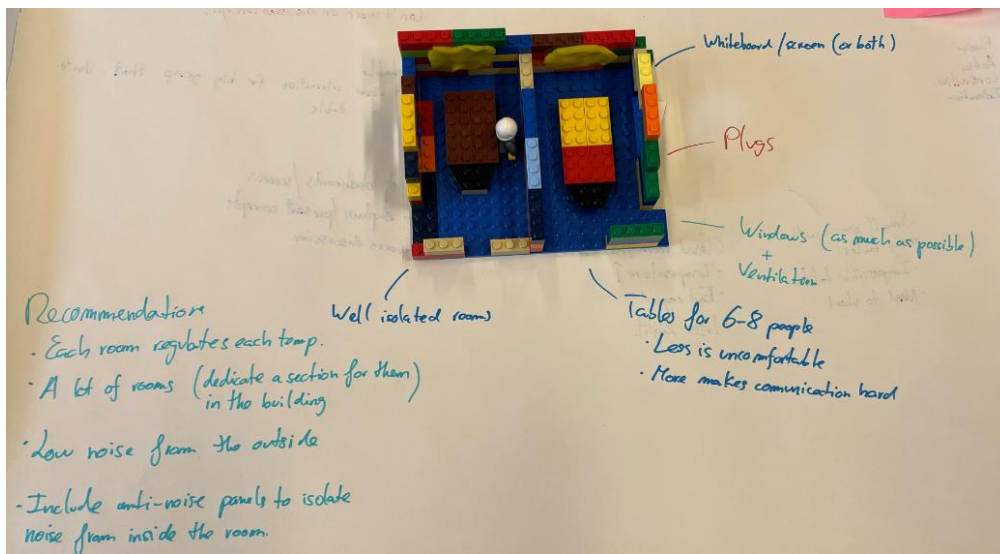 Whiteboard / screen (or both)
Plugs
Windows (as much as possible)
+
Ventilation
Well isolated rooms
Tables for 6-8 people
· Less is uncomfortable
· More makes communication hard
Recommendations
· Each room regulates each temp.
· A lot of rooms (dedicate a section for them)
in the building
· Low noise from the outside
- Include anti-noise panels to isolate
noise from inside the room.